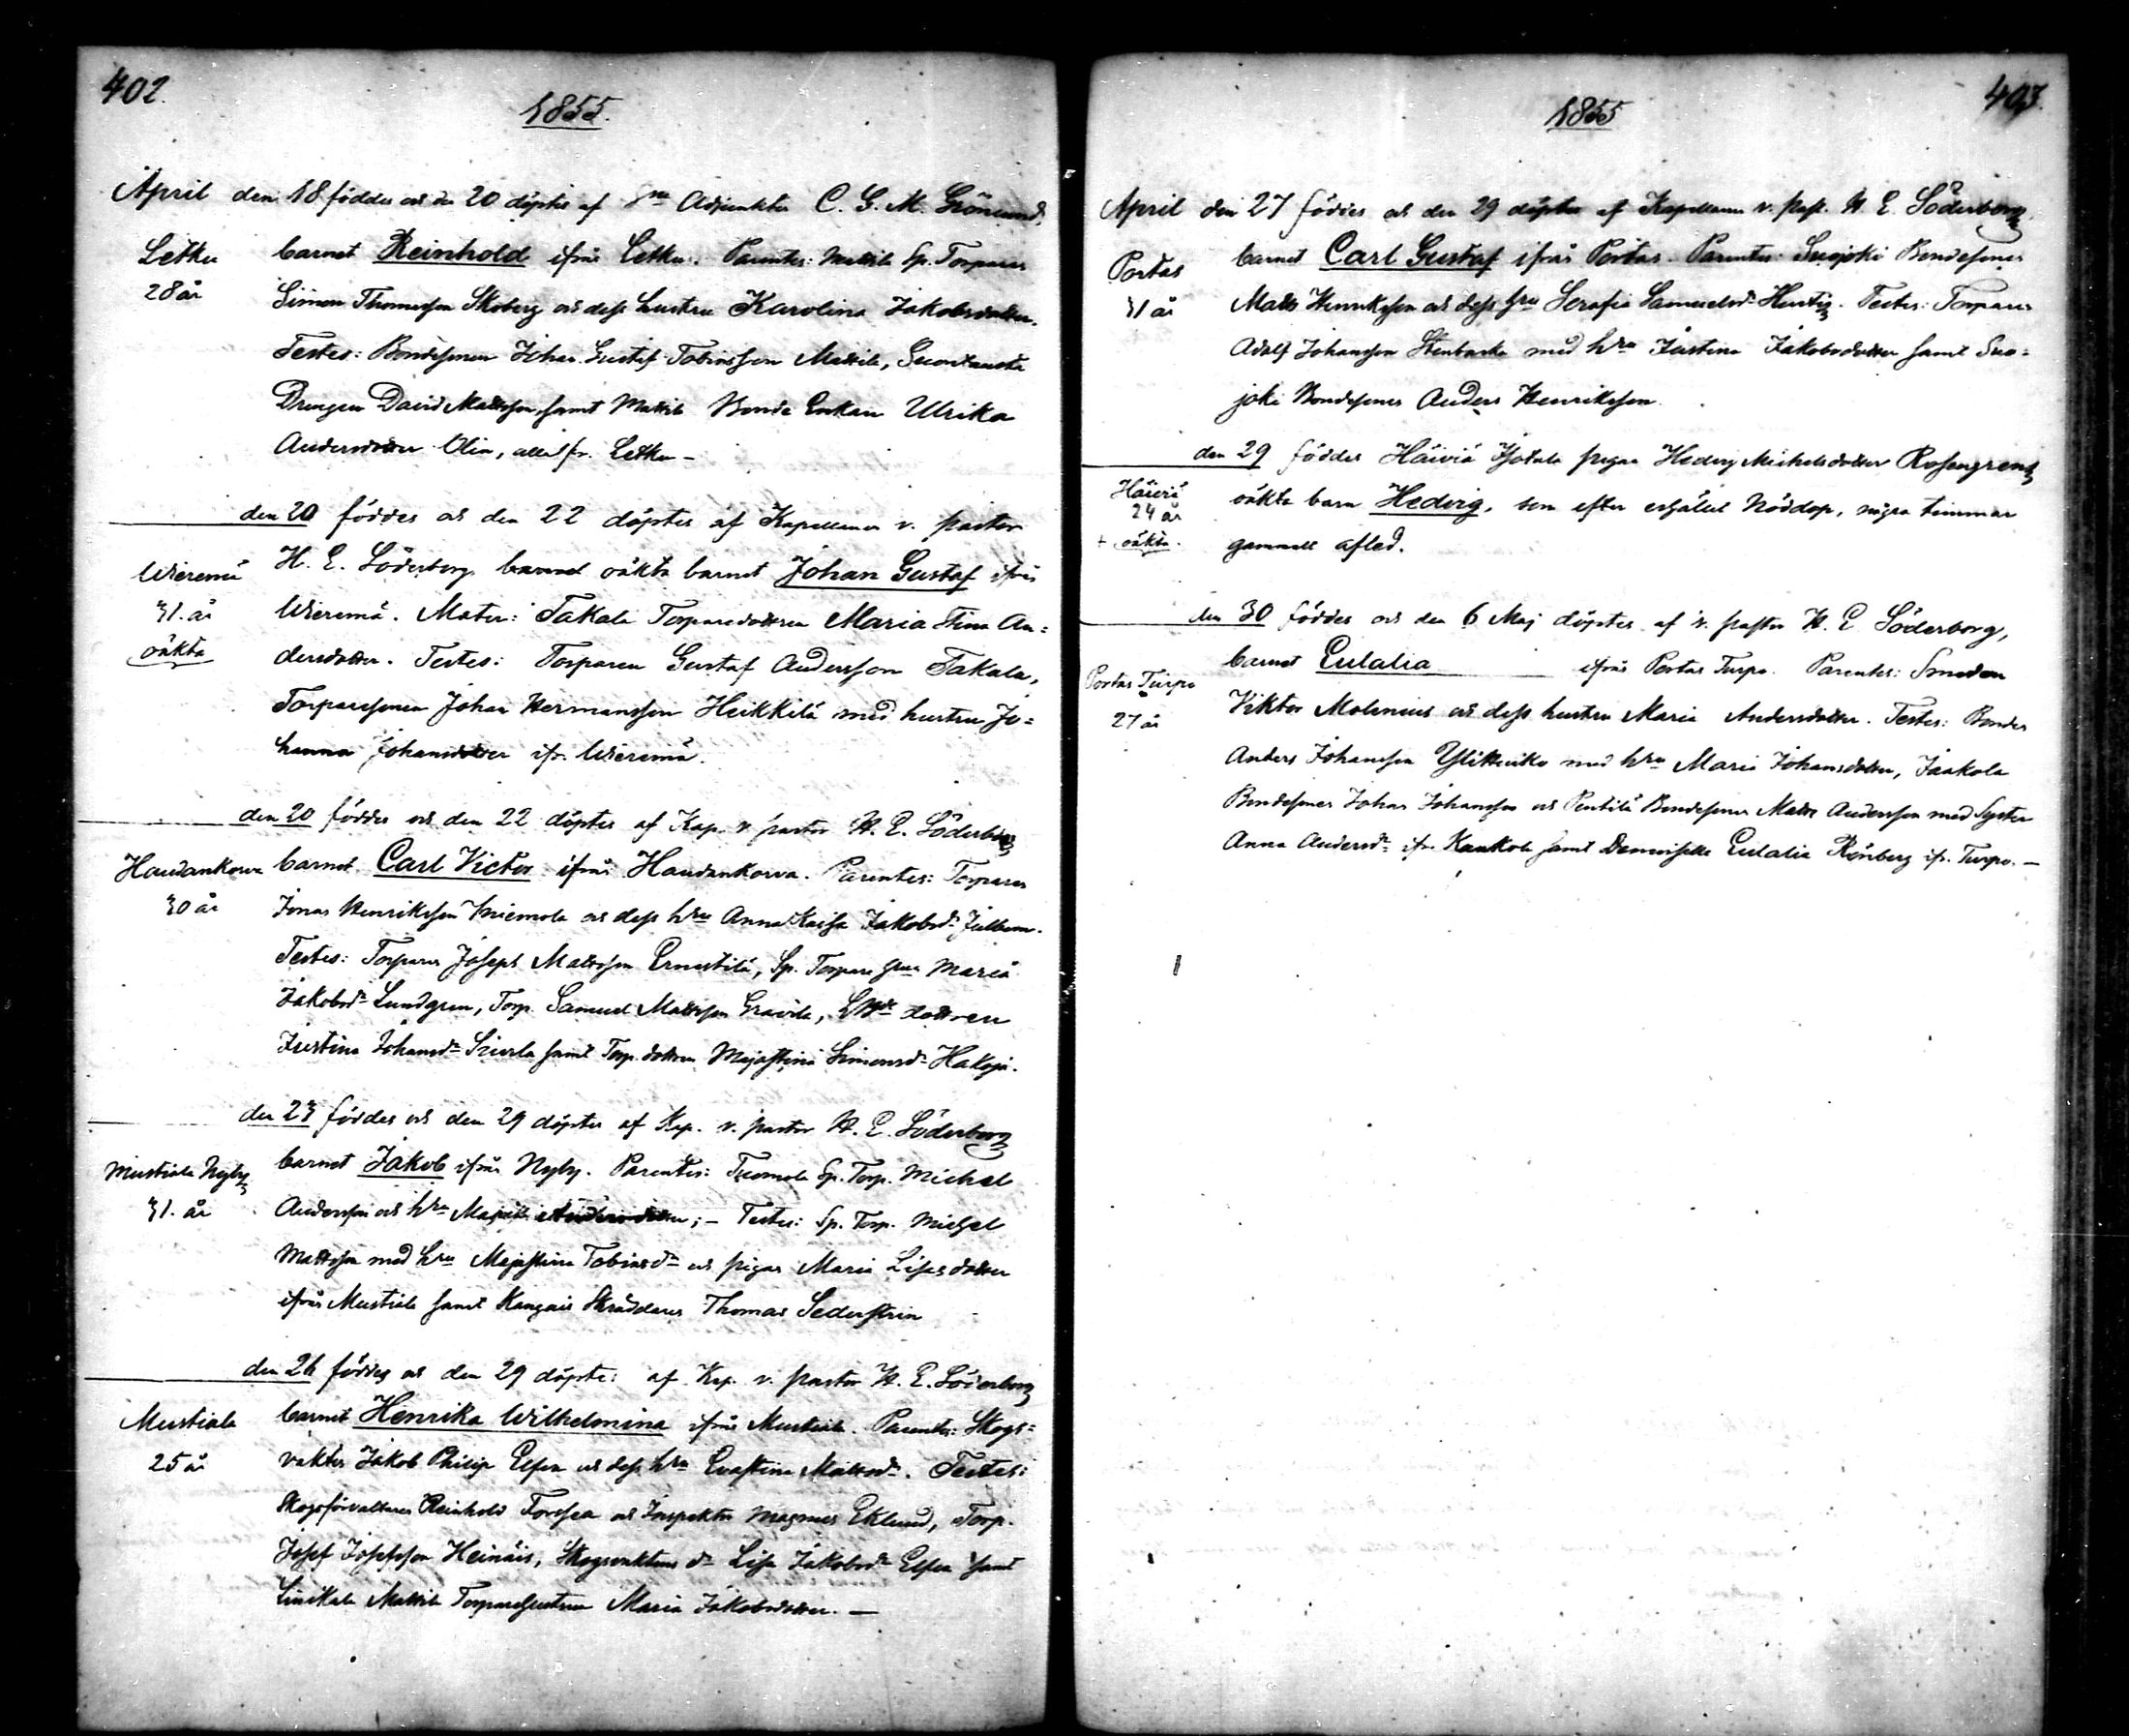 402.
1855.
April den 18 föddes och den 20 döptes af Adjunkten C. G. M. Grönlund,
Letku barnet Reinhold ifrån Letku. Parentes: Mattila Sp. Torparen
28 år Simon Thomasson Skoberg och dess hustru Karolina Jakobsdotter.
Testes: Bondesonen Johan Gustaf Tobiasson Mattila,
Drengen David Mattsson, samt Mattila Bonde Enkan Ulrika
Andersdotter Olin, alla fr. Letku –
den 20 föddes och den 22 döptes af Kapellanen v. pastor
Wieremä H. E. Söderborg barnet oäkta barnet Johan Gustaf ifrån
31. år Wieremä. Mater: Takala Torparedottren Maria Stina An=
oäkta dersdotter. Testes: Torparen Gustaf Andersson Takala,
Torparesonen Johan Hermansson Heikkilä med hustru Jo=
hanna Johansdotter ifr. Wieremä.
den 20 föddes och den 22 döptes af Kap. v. pastor H. E. Söderborg
Haudankorva barnet Carl Victor ifrån Haudankorva. Parentes: Torparen
30 år Jonas Henriksson Niemola och dess hru Anna Kaisa Jakobsdr
Testes: Torparen Joseph Mattsson Ernestilä, Sp. Torpare hru Maria
Jakobsdr Lundgren, Torp. Samuel Mattsson dottren
Justina Johansdr samt Torp. dottren Majastina Simonsdr Hakoja.
den 23 föddes och den 29 döptes af Kap. v. pastor H. E. Söderborg
Mustiala Nyby barnet Jakob ifrån Nyby. Parentes: Tuomola Sp. Torp. Michel
31. år Andersson och hru Andersdotter; – Testes: Sp. Torp. Michel
Mattsson med hru Majastina Tobiasdr och pigan Maria Lisasdotter
ifrån Mustiala samt Kangais Skräddaren Thomas Sederström
den 26 föddes och den 29 döptes af Kap. v. pastor H. E. Söderborg
Mustiala barnet Henrika Wilhelmina ifrån Mustiala. Parentes: Skogs=
25 år vakten Jakob Philip Elfen och dess hru Evastina Mattsdr. Testes:
Skogsförvaltaren Reinhold Forssen och Inspektor Magnus Eklund, Torp.
Josef Josefsson Heinäis, Skogsvaktens dr Lisa Jakobsdr Elfen samt
Mattila Torparehustrun Maria Jakobsdotter. –
403.
1855
April den 27 föddes och den 29 döptes af Kapellanen v. past. H. E. Söderborg
Portas barnet Carl Gustaf ifrån Portas. Parentes: Suojoki Bondesonen
31 år Matts Henriksson och dess hru Serafia Samuelsdr. Testes: Torparen
Adolf Johansson Stenbacka med hru Justina Jakobsdotter samt Suo=
joki Bondesonen Anders Henriksson.
den 29 föddes Häiviä pigan Hedvig Michelsdotter Rosengrens
Häiviä oäkta barn Hedvig, som efter erhållet Nöddop, några timmar
24 år gammalt afled.
+ oäkta.
den 30 föddes och den 6 Maj döptes af v. pastor H. E. Söderborg,
Portas Turpo barnet Eulalia ifrån Portas Turpo. Parentes: Smeden
27 år Viktor Molenius och dess hustru Maria Andersdotter. Testes: Bonden
Anders Johansson med hru Maria Johansdotter, Jaakola
Bondesonen Johan Johansson och Penttilä Bondesonen Matts Andersson med Syster
Anna Andersdr ifr. Kaukola samt Demoiselle Eulalia Rönberg ifr. Turpo. –